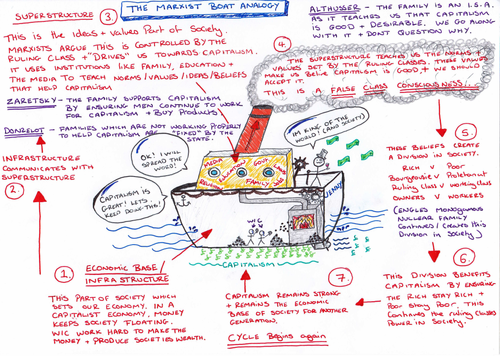 THE MARXIST BOAT ANALOGY
SUPERSTRUCTURE 3.
This is the Ideas + Values Part of Society.
MARXISTS ARGUE THIS IS CONTROLLED BY THE
RULING CLASS + 'DRIVES' US TOWARDS CAPITALISM.
IT USES INSTITUTIONS LIKE FAMILY, EDUCATION +
THE MEDIA TO TEACH NORMS/VALUES/IDEAS/BELIEFS
THAT HELP CAPITALISM
ZARETSKY - THE FAMILY SUPPORTS CAPITALISM
BY ENSURING MEN CONTINUE TO WORK
FOR CAPITALISM + Buy Products!
DONZELOT - FAMILIES WHICH ARE NOT WORKING PROPERLY
TO HELP CAPITALISM ARE 'FIXED' BY THE
STATE!
ALTHUSSER - THE FAMILY IS AN I.S.A.
AS IT TEACHES US THAT CAPITALISM
IS GOOD + DESIRABLE. WE GO ALONG
WITH IT + DONT QUESTION WHY.
4.
THE SUPERSTRUCTURE TEACHES US THE NORMS +
VALUES SET BY THE RULING CLASSES. THESE VALUES
MAKE US BELIEVE CAPITALISM IS GOOD + WE SHOULD
ACCEPT IT.
THIS IS A FALSE CLASS CONSCIOUSNESS...
INFRASTRUCTURE
COMMUNICATES WITH
SUPERSTRUCTURE
2.
OK! I WILL
SPREAD THE
WORD!
I AM KING OF THE
WORLD! (AND SOCIETY)
CAPITALISM IS
GREAT! LETS
KEEP DOING THIS!
MEDIA
EDUCATION
GOVT
RELIGION
FAMILY
W/C
CAPITALISM
5.
THESE BELIEFS CREATE
A DIVISION IN SOCIETY.
RICH v Poor
Bourgeoisie v Proletariat
Ruling Class v working Class
OWNERS v WORKERS
(ENGLES MONOGAMOUS
NUCLEAR FAMILY
Continues / Creates this
Division in Society)
6.
THIS DIVISION BENEFITS
CAPITALISM BY ENSURING
THE RICH STAY RICH +
Poor Stay Poor. THIS
Continues the ruling Classes
POWER in Society.
7.
CAPITALISM REMAINS STRONG
+ REMAINS THE ECONOMIC
BASE OF SOCIETY FOR ANOTHER
GENERATION.
CYCLE Begins again
1.
ECONOMIC BASE/
INFRASTRUCTURE
THIS PART OF SOCIETY WHICH
SETS OUR ECONOMY. IN A
CAPITALIST ECONOMY, MONEY
KEEPS SOCIETY FLOATING.
W/C WORK HARD TO MAKE THE
MONEY + PRODUCE SOCIETIES WEALTH.